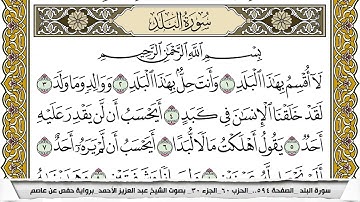 سُورَةُ الْبَلَدِ
بِسْمِ اللَّهِ الرَّحْمَٰنِ الرَّحِيمِ
لَا أُقْسِمُ بِهَٰذَا الْبَلَدِ ١ وَأَنتَ حِلٌّ بِهَٰذَا الْبَلَدِ ٢ وَوَالِدٍ وَمَا وَلَدَ ٣
لَقَدْ خَلَقْنَا الْإِنسَٰنَ فِي كَبَدٍ ٤ أَيَحْسَبُ أَن لَّن يَقْدِرَ عَلَيْهِ
أَحَدٌ ٥ يَقُولُ أَهْلَكْتُ مَالًا لُّبَدًا ٦ أَيَحْسَبُ أَن لَّمْ يَرَهُ أَحَدٌ ٧
سورة البلد_الصفحة ٥٩٤_الحزب ٦٠_الجزء ٣٠_بصوت الشيخ عبد العزيز الأحمد_برواية حفص عن عاصم